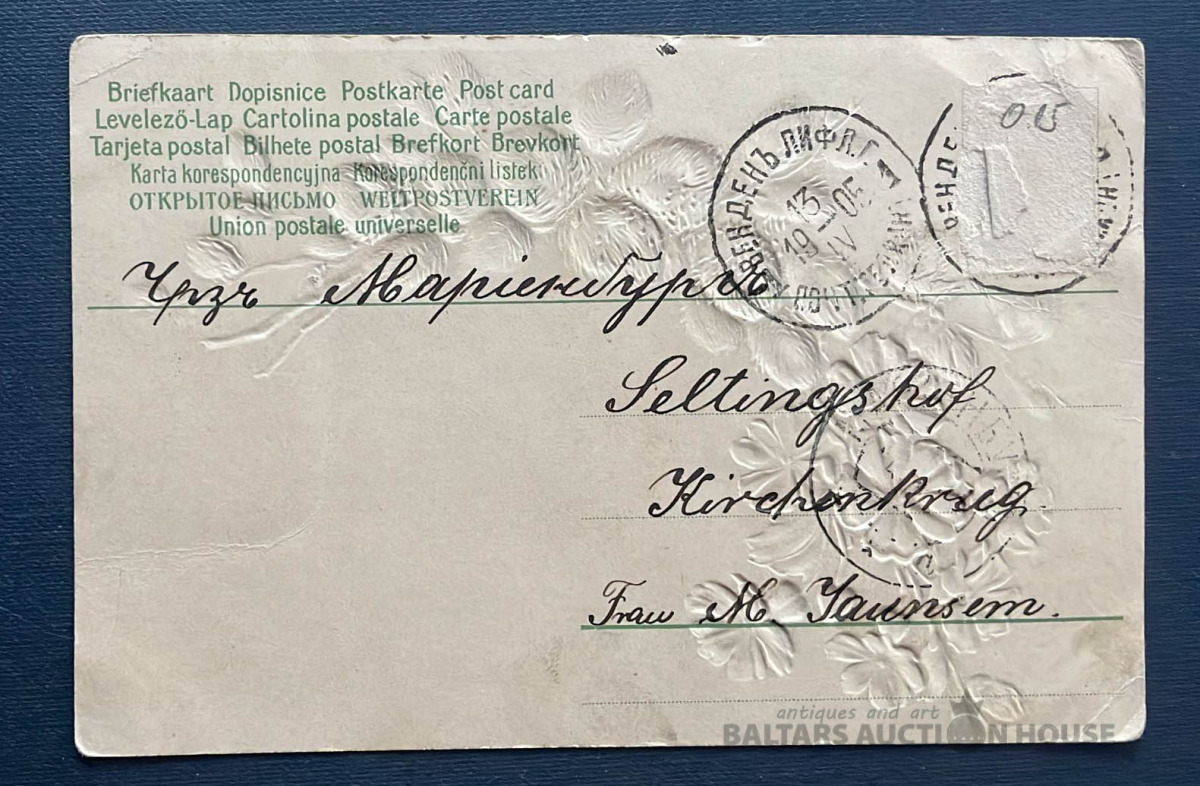 Briefkaart Dopisnice Postkarte Post card
Levelező-Lap Cartolina postale Carte postale
Tarjeta postal Bilhete postal Brefkort Brevkort
Karta korespondencyjna Korespondenční listek
ОТКРЫТОЕ ПИСЬМО WELTPOSTVEREIN
Union postale universelle
015
ВЕНДЕНЪ ЛИФЛ. Г. 1
13 IV 1905
ВЕНДЕ
Чрзъ Маріенбургъ
Seltingshof
Kirchenkrug.
Frau M. Jaunsem.
antiques and art
BALTARS AUCTION HOUSE